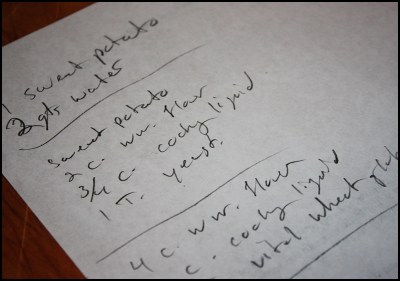 1 sweet potato
3 qts water
sweet potato
2 C. ww. flour
3/4 C. cooky liquid
1 T. yeast.
4 C. ww. flour
C. cooky liquid
vital wheat